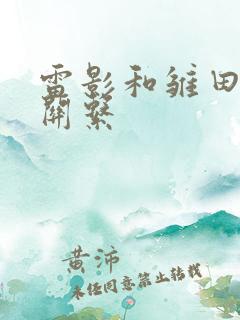 雷影和雏田
關繫
黄沛
未经同意禁止转载